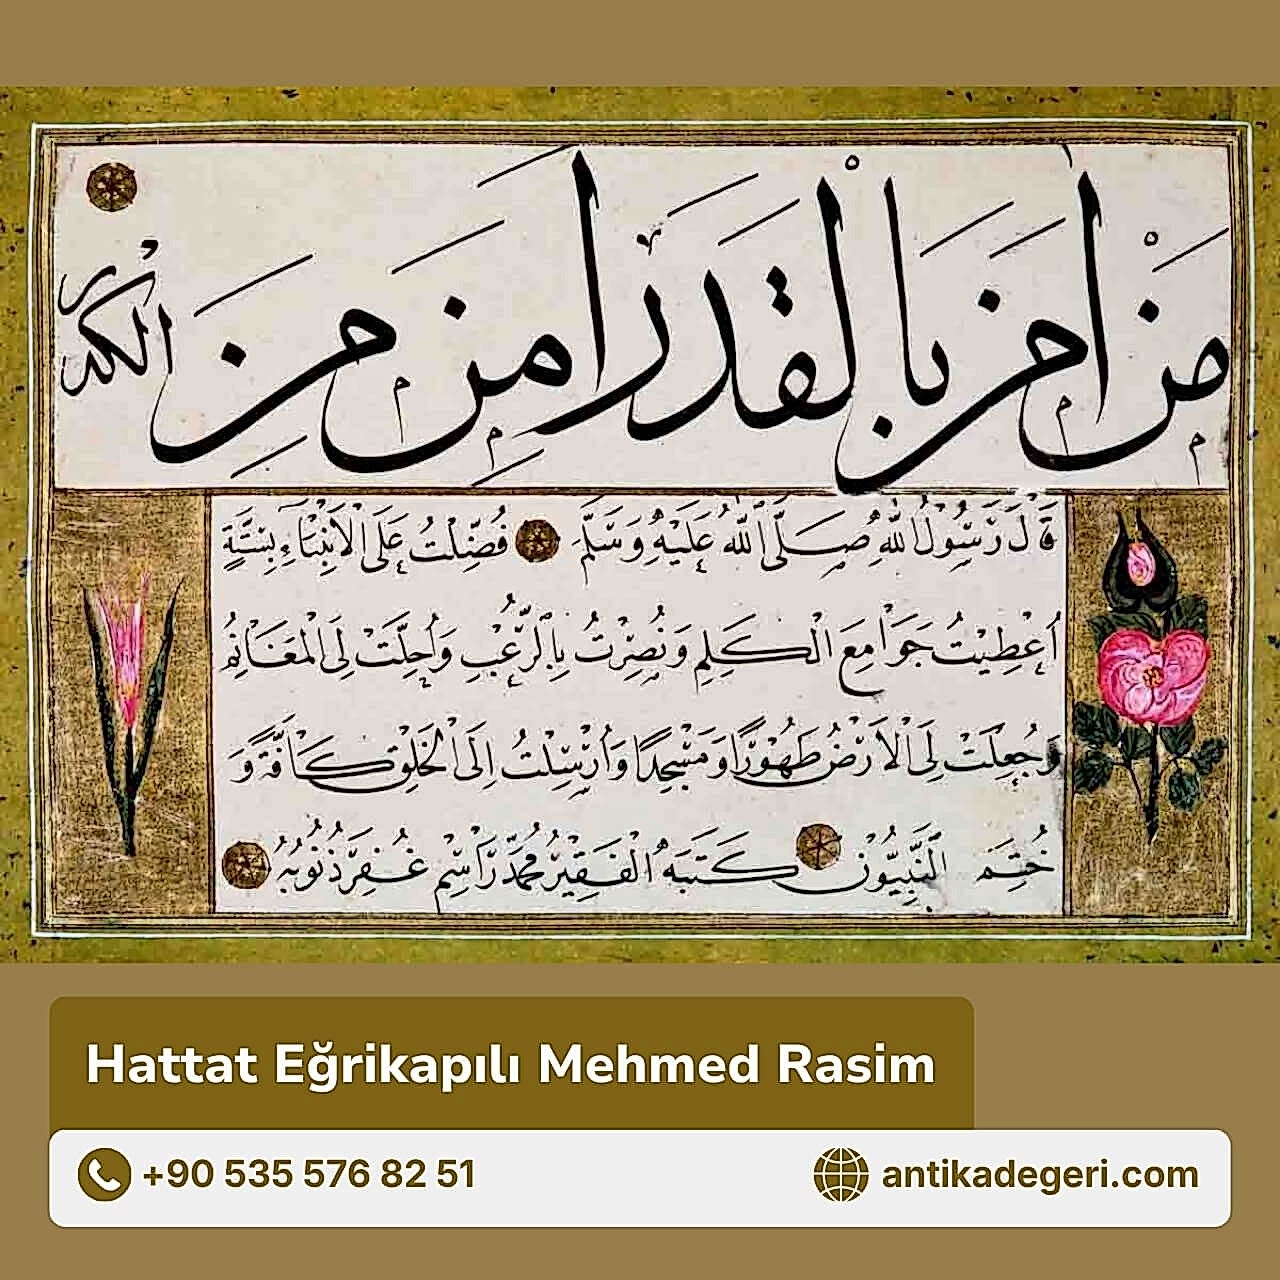 مَنْ اٰمَنَ بِالْقَدَرِ اَمِنَ مِنَ الْكَدَرِ
قَالَ رَسُولُ اللّٰهِ صَلَّى اللّٰهُ عَلَيْهِ وَسَلَّمَ فُضِّلْتُ عَلَى الْاَنْبِيَاءِ بِسِتَّةٍ
اُعْطِيْتُ جَوَامِعَ الْكَلِمِ وَنُصِرْتُ بِالرُّعْبِ وَاُحِلَّتْ لِىَ الْمَغَانِمُ
وَجُعِلَتْ لِىَ الْاَرْضُ طَهُوْرًا وَمَسْجِدًا وَاُرْسِلْتُ اِلَى الْخَلْقِ كَافَّةً وَ
خُتِمَ النَّبِيُّوْنَ كَتَبَهُ الْفَقِيْرُ مُحَمَّدْ رَاسِمْ غُفِرَ ذُنُوْبُهُ
Hattat Eğrikapılı Mehmed Rasim
+90 535 576 82 51
antikadegeri.com